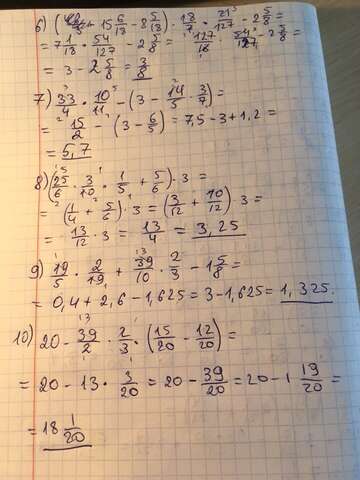 6) ( 15 6/13 - 8 5/13) · 18/7 · 21/127 - 2 5/8 =
= 7 1/13 · 54/127 - 2 5/8 = · 54/127 - 2 5/8 =
= 3 - 2 5/8 = 3/8
7) 33/4 · 10/11 - (3 - 14/5 · 3/7) =
= 15/2 - (3 - 6/5) = 7,5 - 3 + 1,2 =
= 5,7
8) (25/6 · 3/10 · 1/5 + 5/6) · 3 =
= (1/4 + 5/6) · 3 = (3/12 + 10/12) · 3 =
= 13/12 · 3 = 13/4 = 3,25
9) 19/5 · 2/19 + 39/10 · 2/3 - 1 5/8 =
= 0,4 + 2,6 - 1,625 = 3 - 1,625 = 1,325.
10) 20 - 39/2 · 2/3 · (15/20 - 12/20) =
= 20 - 13 · 3/20 = 20 - 39/20 = 20 - 1 19/20 =
= 18 1/20